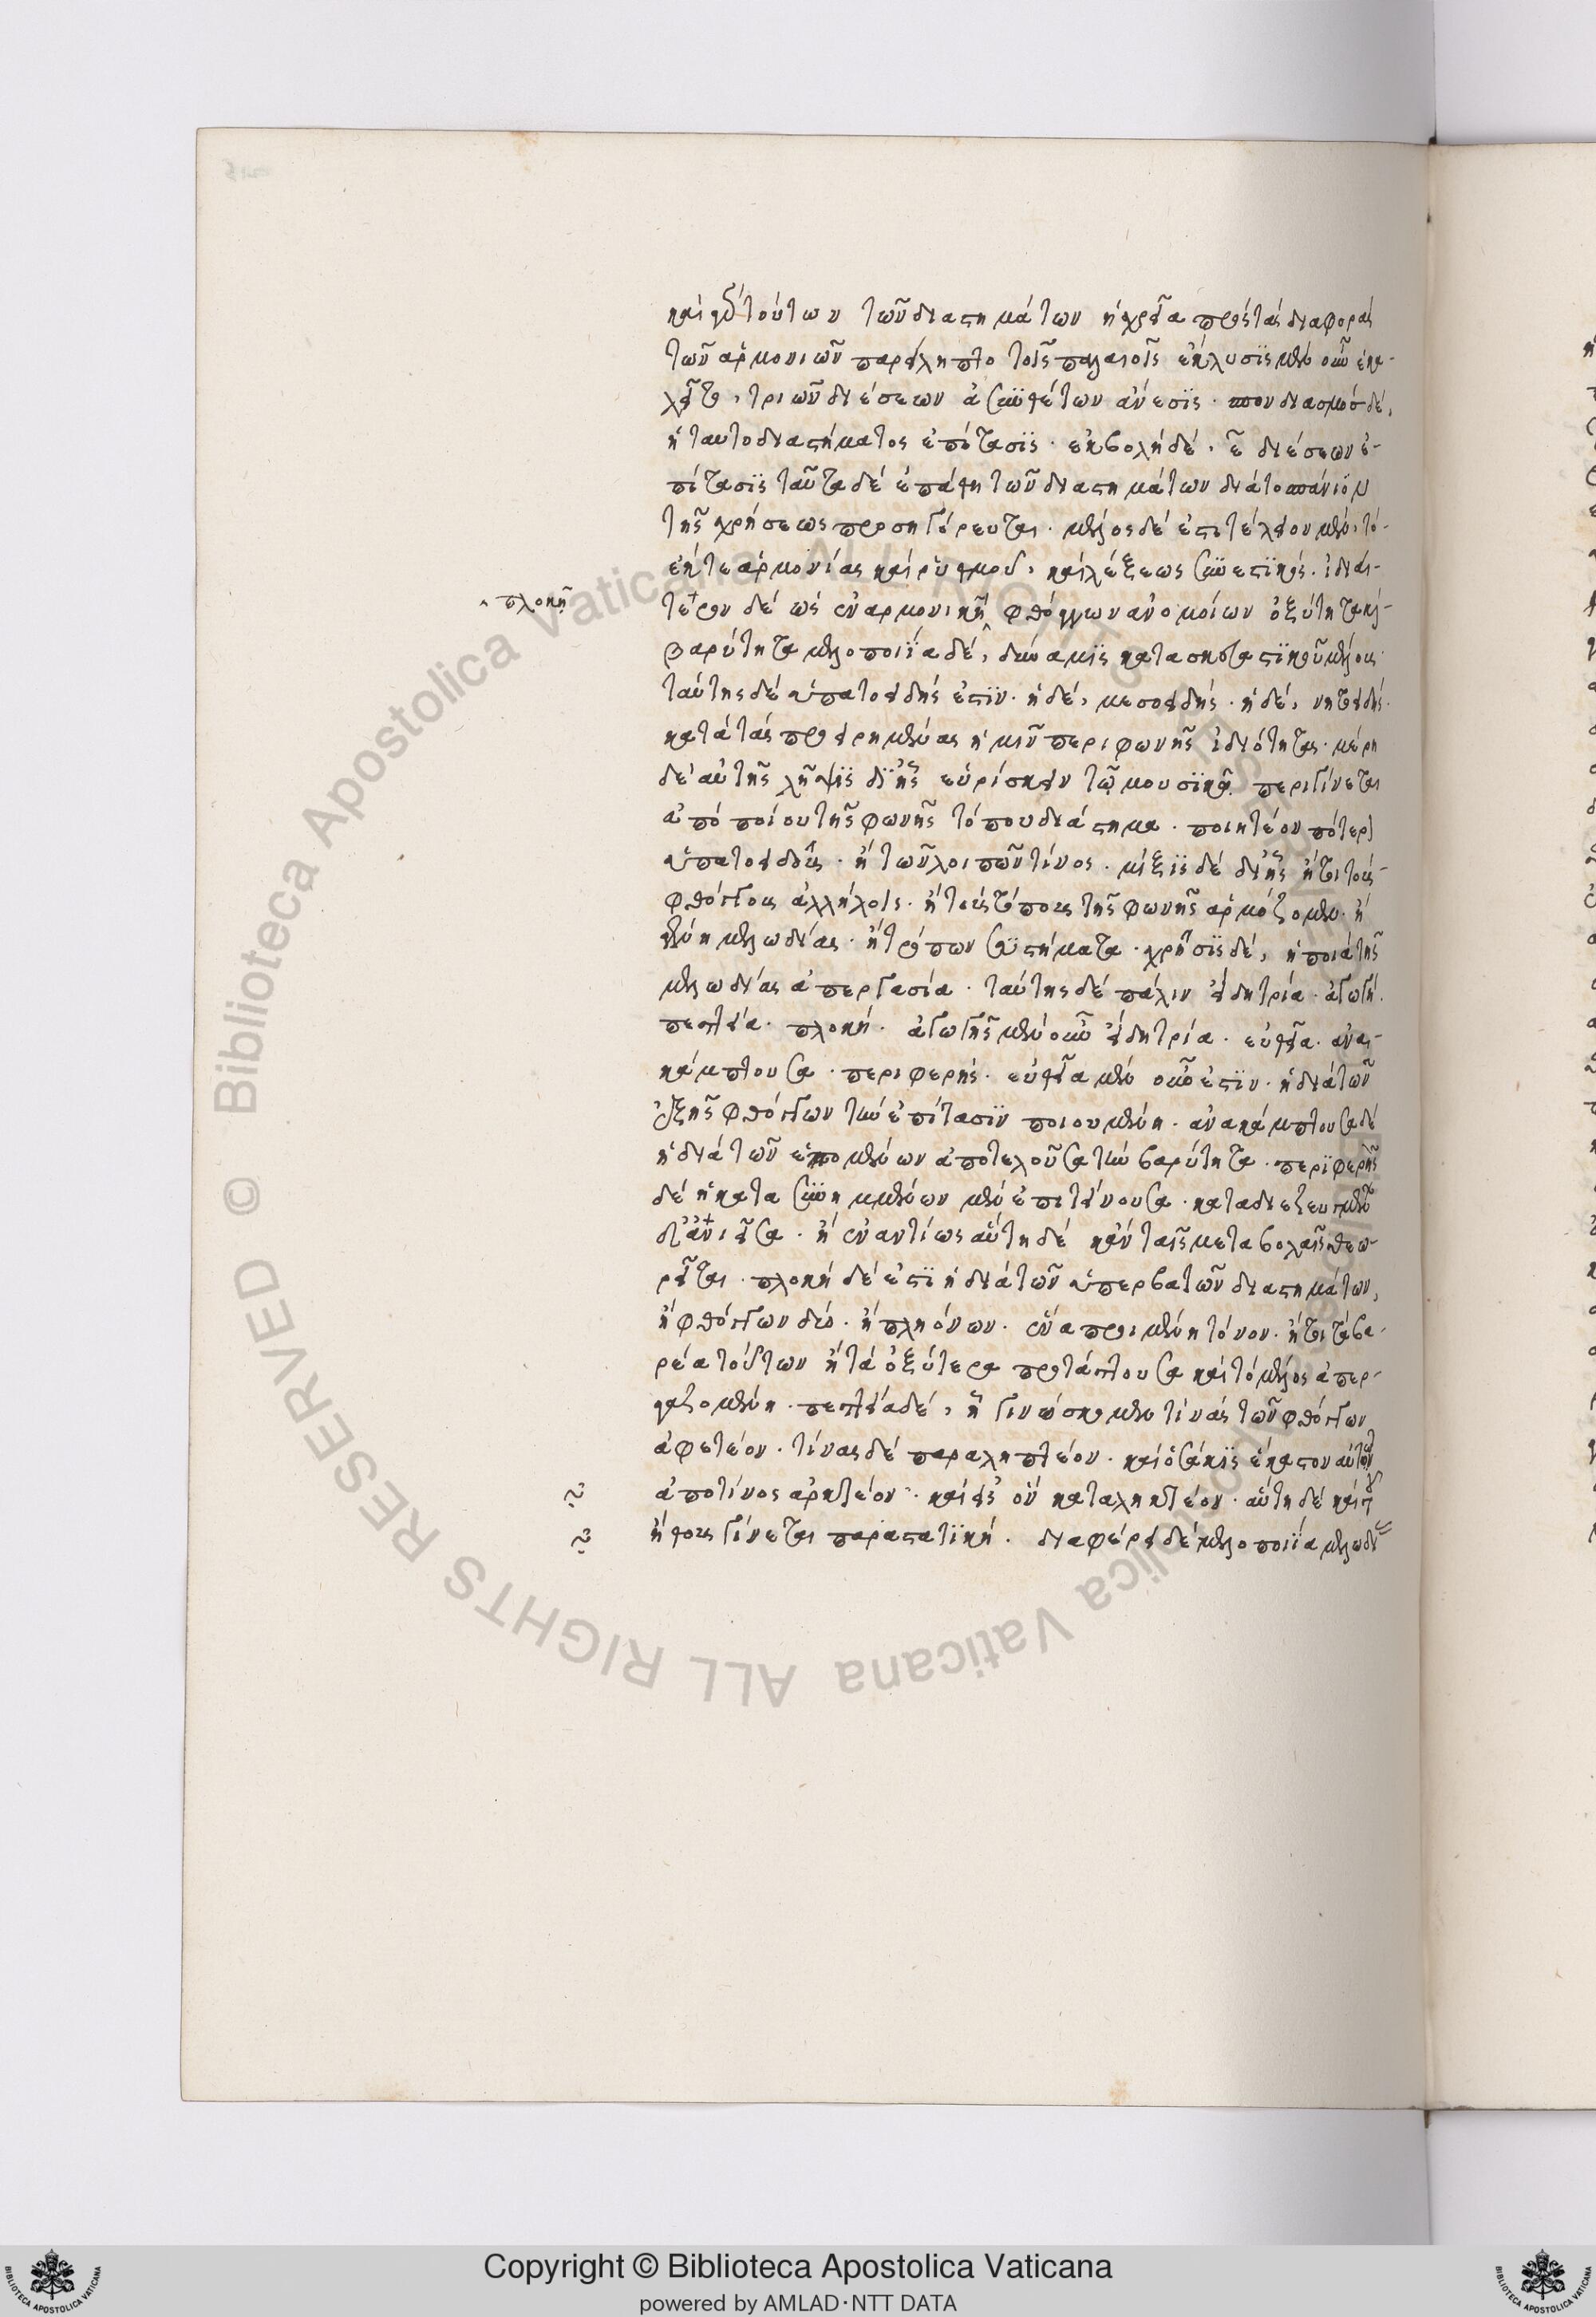 καὶ γὰρ τούτων τῶν διαστημάτων ἡ χρεία πρὸς τὰς διαφορὰς
τῶν ἁρμονιῶν παρείληπτο τοῖς παλαιοῖς ἔκλυσις μὲν οὖν ἐκα-
λεῖτο, τριῶν διέσεων ἀσυνθέτων ἄνεσις. σπονδιασμὸς δὲ,
ἡ ταυτοδιαστήματος ἐπίτασις. ἐκβολὴ δὲ, ε̄ διέσεων ἐ-
πίτασις ταῦτα δὲ ἐπάθη τῶν διαστημάτων διὰ τὸ σπάνιον
τῆς χρήσεως προσηγόρευται. μέλος δὲ ἐστι τέλειον μὲν, τὸ-
ἔκ τε ἁρμονίας καὶ ῥυθμοῦ, καὶ λέξεως συνεστικός. ἰδιαι-
τερον δὲ ὡς ἐν ἁρμονικῇ ‸ φθόγγων ἀνομοίων ὀξύτητα καὶ
‸ πλοκὴ
βαρύτητα μελοποιία δὲ, δύναμις κατασκευαστικὴ μέλους.
ταύτης δὲ ὑπατοειδής ἐστιν. ἡ δὲ, μεσοειδής. ἡ δὲ, νητοειδής.
κατὰ τὰς προειρημένας ἡμῖν περι φωνῆς ἰδιότητας. μέρη
δὲ αὐτῆς λῆψις δι' ἧς εὑρίσκειν τῷ μουσικῷ περιγίνεται
ἀπὸ ποίου τῆς φωνῆς τόπου διάστημα. ποιητέον πότερον
ὑπατοειδοῦς. ἢ τῶν λοιπῶν τίνος. μίξις δὲ δι' ἧς ἤτοι τοὺς-
φθόγγους ἀλλήλοις. ἢ τοὺς τόπους τῆς φωνῆς ἁρμόζομεν. ἢ
γένη μελωδίας. ἢ τρόπων συστήματα. χρῆσις δὲ, ἡ ποιὰ τῆς
μελωδίας ἀπεργασία. ταύτης δὲ πάλιν εἴδη τρία. ἀγωγή.
πεττεία. πλοκή. ἀγωγῆς μὲν οὖν εἴδη τρία. εὐθεῖα. ἀνα-
κάμπτουσα. περιφερής. εὐθεῖα μὲν οὖν ἐστιν. ἡ διὰ τῶν
ἑξῆς φθόγγων τὴν ἐπίτασιν ποιουμένη. ἀνακάμπτουσα δὲ
ἡ διὰ τῶν ἑπομένων ἀποτελοῦσα τὴν βαρύτητα. περιφερὴς
δὲ ἡ κατα συνημμένων μὲν ἐπιτείνουσα. κατα διεζευγμένων
δ' ἀνιεῖσα. ἢ ἐναντίως αὕτη δὲ κἀν ταῖς μεταβολαῖς θεω-
ρεῖται. πλοκὴ δὲ ἐστὶ ἡ διὰ τῶν ὑπερβατῶν διαστημάτων,
ἢ φθόγγων δύο. ἢ πληόνων. ἕνα πριμένη τόνον. ἤτοι τὰ βα-
ρέα τούτων ἢ τὰ ὀξύτερα προτάττουσα καὶ τὸ μέλος ἀπερ-
γαζομένη. πεττεία δὲ, ᾗ γινώσκομεν τίνας τῶν φθόγγων
ἀφετέον. τίνας δὲ παραληπτέον. καὶ ὁσάκις ἕκαστον αὐτῶν
ἀπο τίνος ἀρκτέον. καὶ εἰς ὃν καταληκτέον. αὕτη δὲ καὶ τοῦ
ἤθους γίνεται παραστατική. διαφέρει δὲ μελοποιία μελωδί-